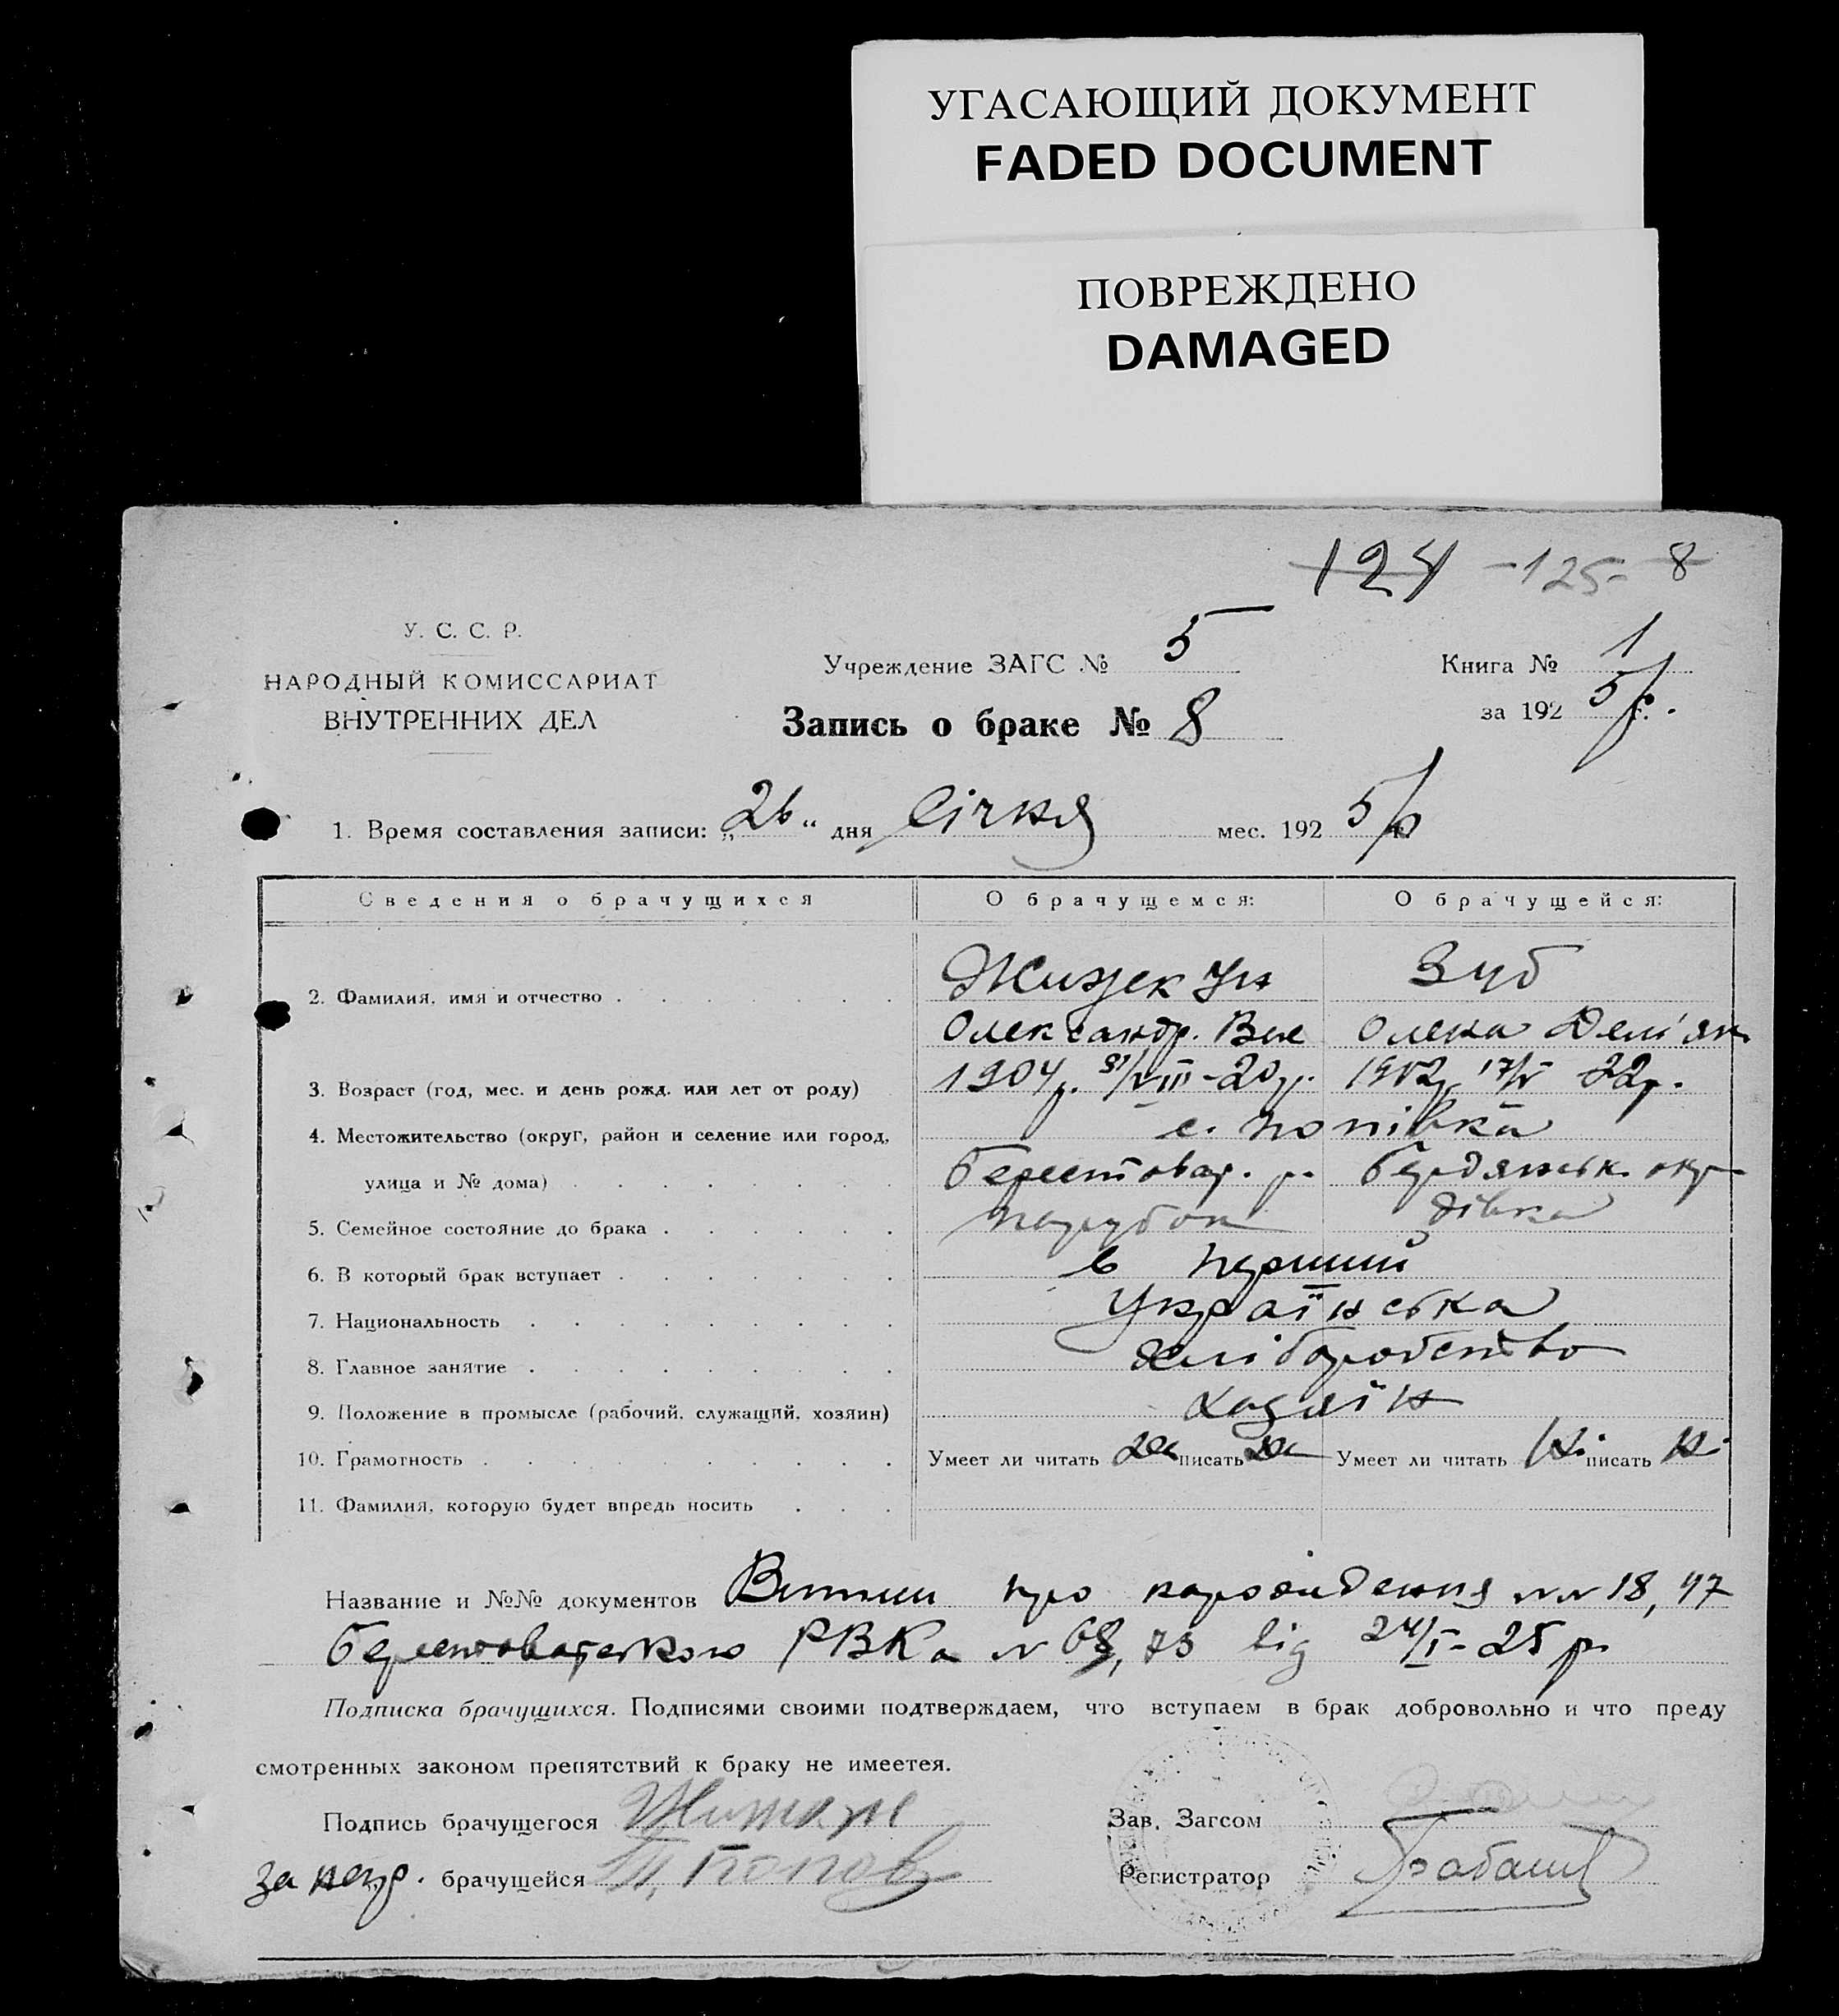 УГАСАЮЩИЙ ДОКУМЕНТ
FADED DOCUMENT
ПОВРЕЖДЕНО
DAMAGED
124 -125- 8
У. С. С. Р.
НАРОДНЫЙ КОМИССАРИАТ
ВНУТРЕННИХ ДЕЛ
Учреждение ЗАГС № 5
Запись о браке № 8
Книга № 1
за 192 5 г.
1. Время составления записи: „26“ дня Січня мес. 192 5 р
Сведения о брачущихся О брачущемся: О брачущейся:
2. Фамилия, имя и отчество Зуб
Олександр. Олена Дем'ян
3. Возраст (год, мес. и день рожд. или лет от роду) 1904р. 31/VIII-20р. 1902р. 17/V 22р.
4. Местожительство (округ, район и селение или город, с. Попівка
улица и № дома) Берестовар. р. Бердянськ. окр
5. Семейное состояние до брака парубок дівка
6. В который брак вступает в перший
7. Национальность Українська
8. Главное занятие хліборобство
9. Положение в промысле (рабочий, служащий, хозяин) хазяїн
10. Грамотность Умеет ли читать да писать да Умеет ли читать ні писать ні
11. Фамилия, которую будет впредь носить
Название и №№ документов про народження №№ 18, 47
РВКа № 68, 73 від 24/I-25р.
Подписка брачущихся. Подписями своими подтверждаем, что вступаем в брак добровольно и что преду
смотренных законом препятствий к браку не имеетея.
Подпись брачущегося
Зав. Загсом
за негр. брачущейся П. Попов
Регистратор